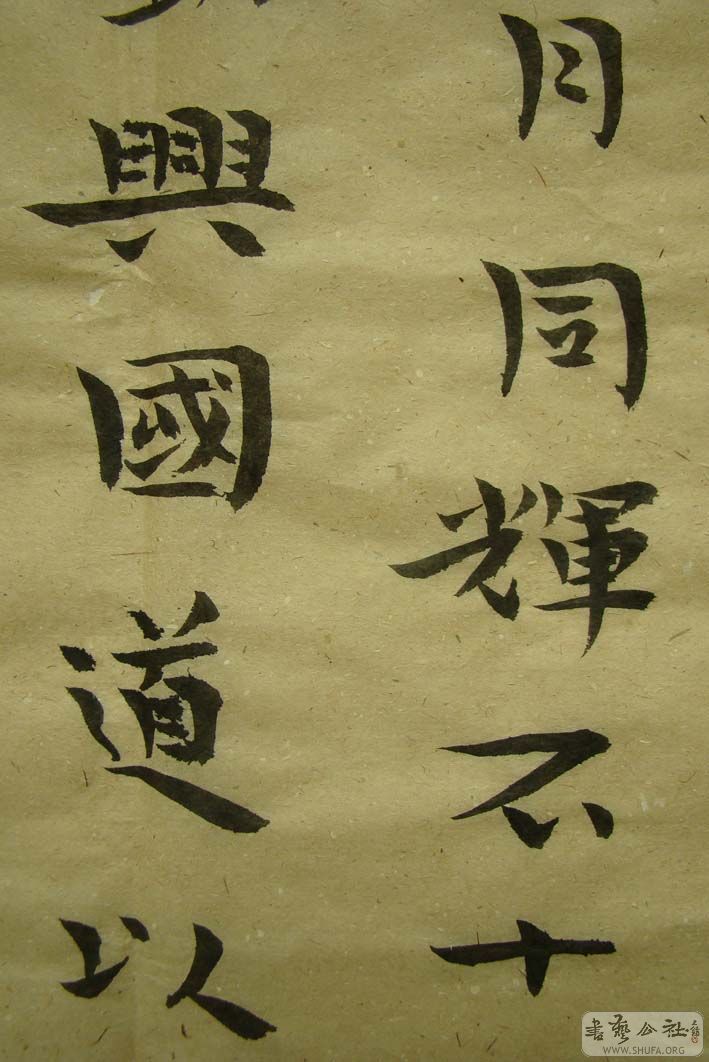 月同輝不十
興國道以
書藝公社
WWW.SHUFA.ORG